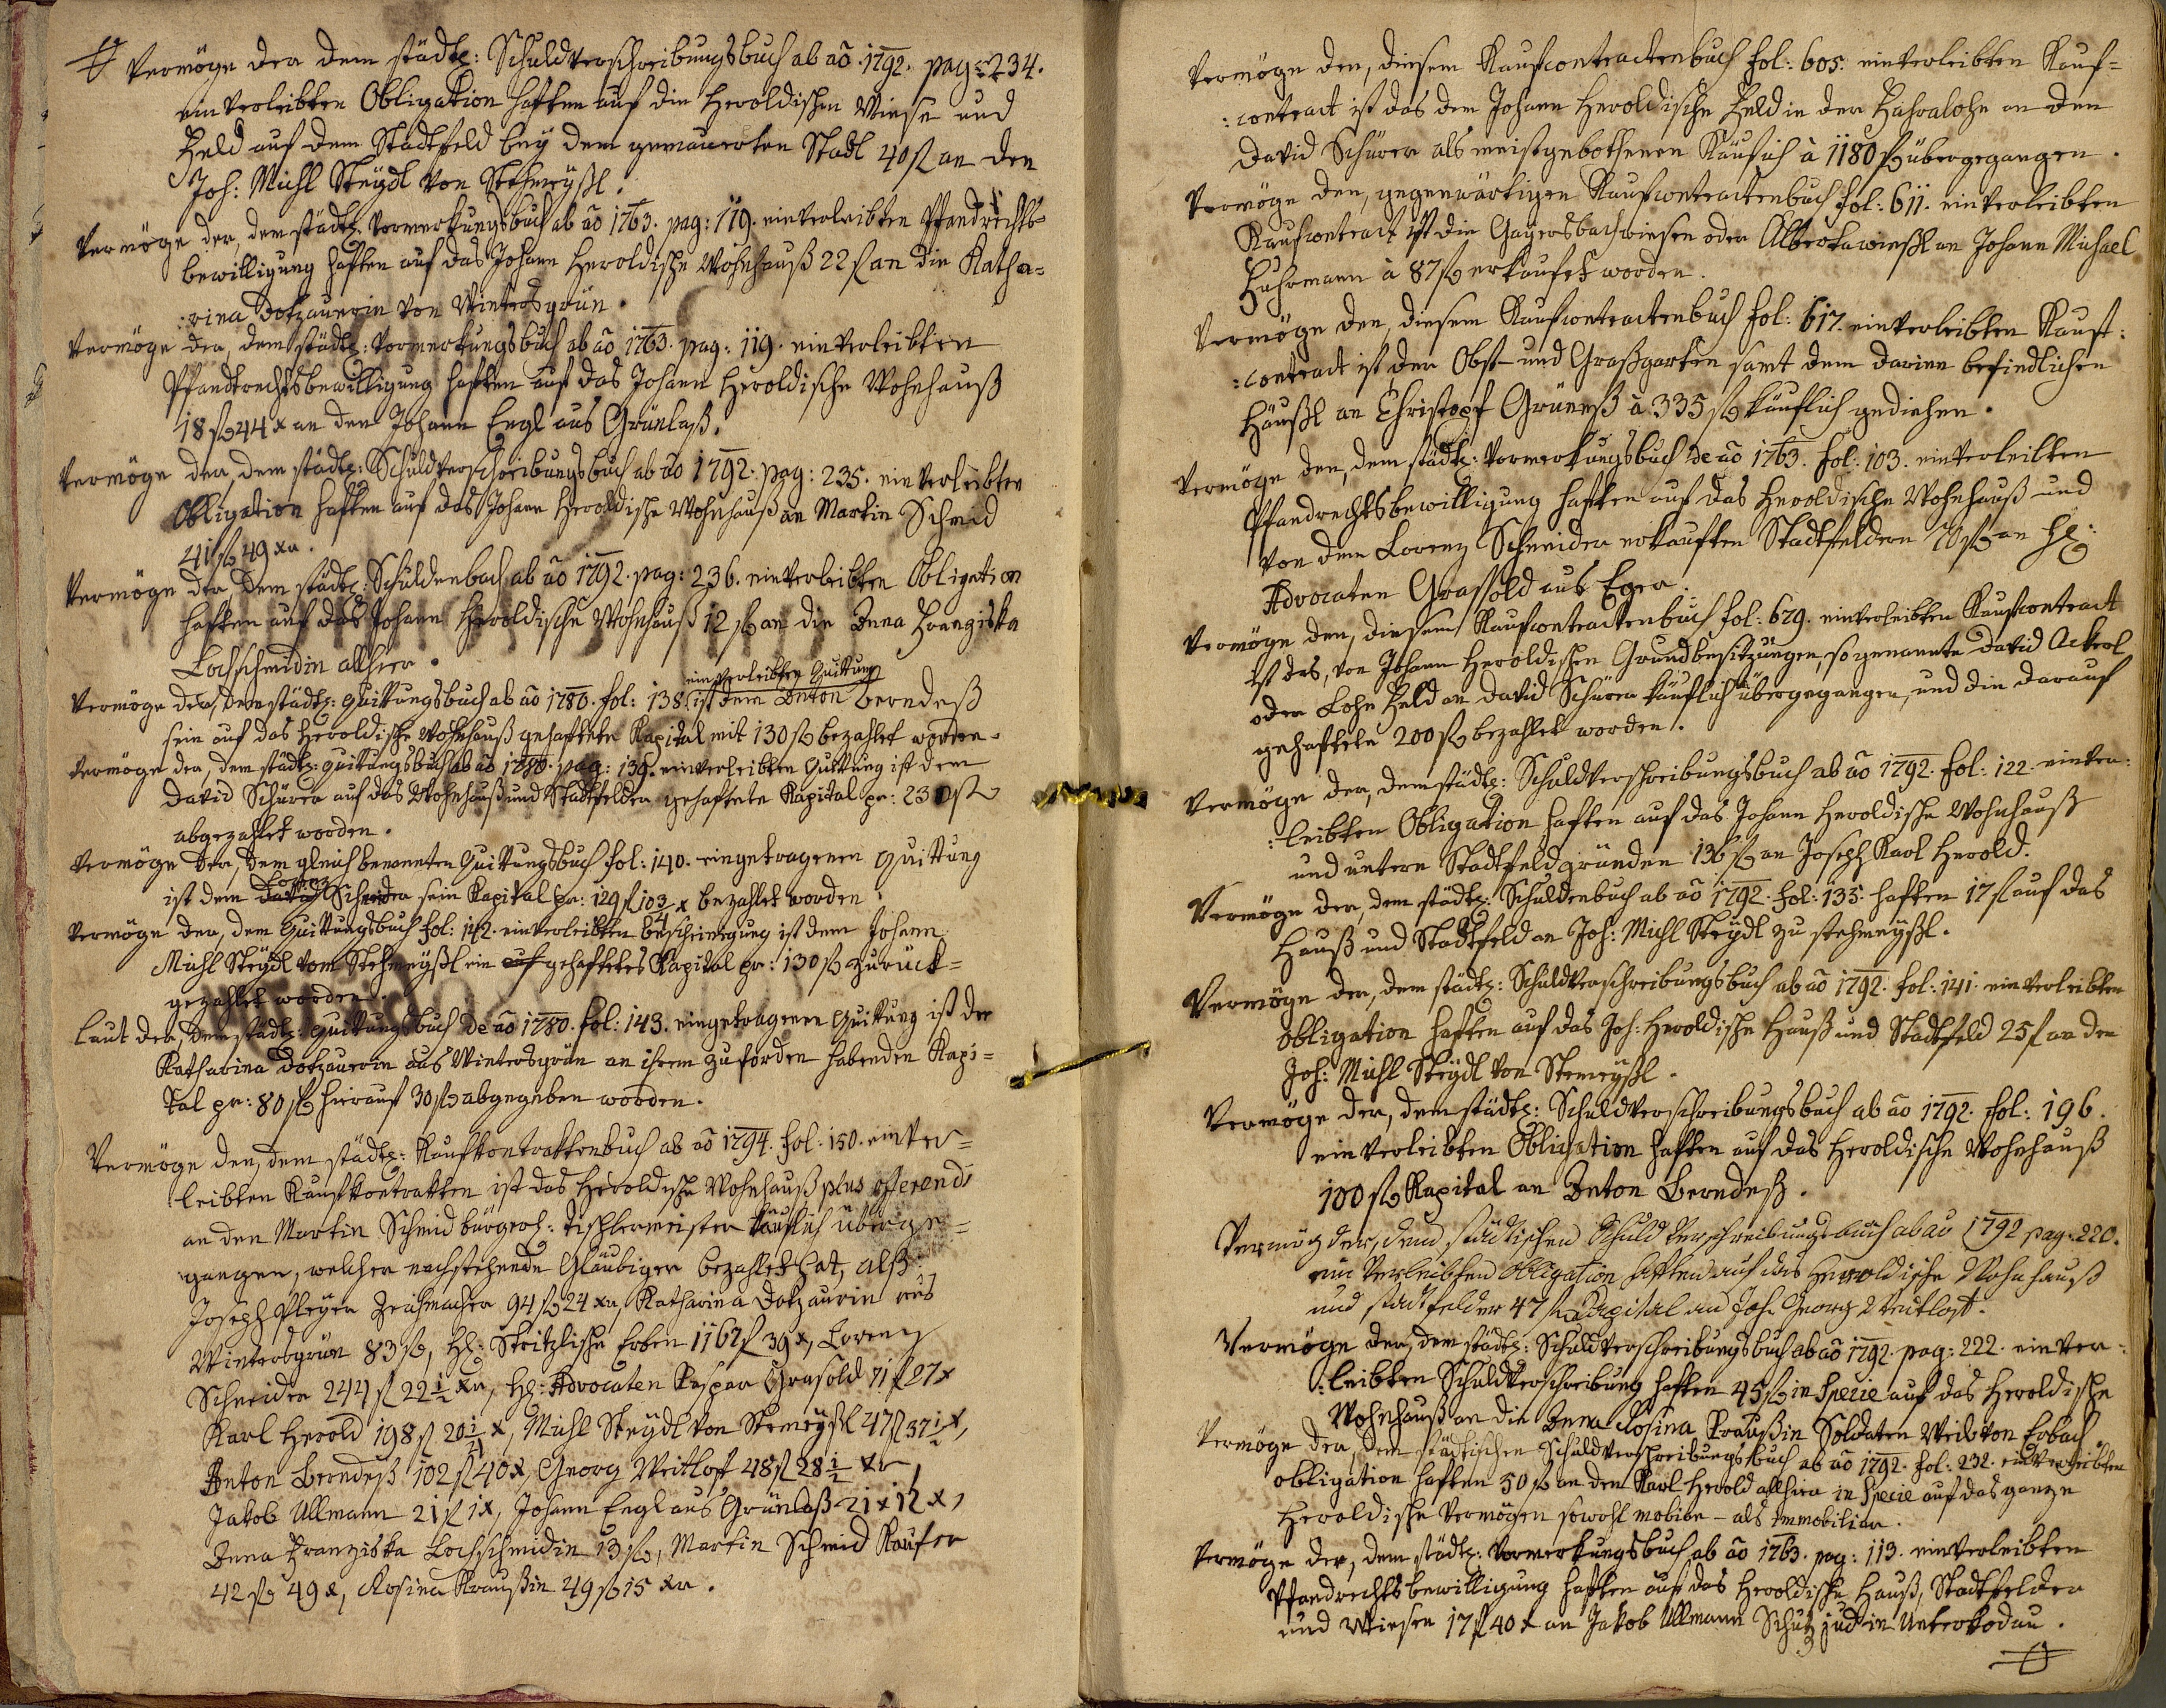 Vermöge der dem städtl: Schuldverschreibungsbuch ab aõ 1792. pag: 234.
einverleibten Obligation haften auf die Heroldischen Wiese und
Feld auf dem Stadtfeld bey dem gemauerten Stadl 40 f an den
Joh: Michl Steydl von Stehmeyßl.
Vermöge der, dem städtl: Vormerkungsbuch ab aõ 1763. pag: 119. einverleibten Pfandrechts-
bewilligung haften auf das Johann Heroldische Wohnhauß 22 f an die Katha=
:rina Dotzauerin von Wintersgrün.
Vermöge der, dem städtl: Vormerkungsbuch ab aõ 1763. pag: 119. einverleibten
Pfandrechtsbewilligung haften auf das Johann Heroldische Wohnhauß
18 f 44 x an den Johann Engl aus Grünlaß.
Vermöge der, dem städtl: Schuldverschreibungsbuch ab aõ 1792. pag: 235. einverleibten
Obligation haften auf das Johann Heroldische Wohnhauß an Martin Schmid
41 f 49 xr.
Vermöge der, dem städtl: Schuldenbuch ab aõ 1792. pag: 236. einverleibten Obligation
haften auf das Johann Heroldische Wohnhauß 12 f an die Anna Franziska
Lochschmidin allhier.
einverleibten Quittung
Vermöge der, dem städtl: Quittungsbuch ab aõ 1780. fol: 138. ist dem Anton Berndeß
sein auf das Heroldische Wohnhauß gehaftete Kapital mit 130 f bezahlet worden.
Vermöge der, dem städtl: Quittungsbuch ab aõ 1780. pag: 139. einverleibten Quittung ist dem
David Schürer auf das Wohnhauß und Stadtfelder gehaftete Kapital pr: 230 f
abgezahlet worden.
Vermöge der, dem gleich benannten Quittungsbuch fol: 140. eingetragenen Quittung
Lorenz
ist dem David Schneider sein Kapital pr: 129 f 10 3/4 x bezahlet worden.
Vermöge der, dem Quittungsbuch fol: 142. einverleibten Bescheinigung ist dem Johann
Michl Steydl vom Stehmeyßl ein auf gehaftetes Kapital pr: 130 f zurück=
gezahlet worden.
Laut der, dem städtl: Quittungsbuch de aõ 1780. fol: 143. eingetragenen Quittung ist der
Katharina Dotzauerin aus Wintersgrün an ihrem zu fordern habenden Kapi=
tal pr: 80 f hierauf 30 f abgegeben worden.
Vermöge den, dem städtl: Kaufkontraktenbuch ab aõ 1794. fol: 150. einver=
leibten Kaufkontrakten ist das Heroldische Wohnhauß plus offerendi
an den Martin Schmid bürgerl: Tischlermeister käuflich überge=
gangen, welcher nachstehende Gläubiger bezahlet hat, alß:
Joseph Pleyer Zeuhmacher 94 f 24 xr, Katharina Dotzaurin aus
Wintersgrün 83 f, H: Stritzlische Erben 1167 f 39 x, Lorenz
Schneider 244 f 22 1/2 xr, H: Advocaten Kaspar Grasold 71 f 27 x
Karl Herold 198 f 20 1/4 x, Michl Steydl von Stemeyßl 47 f 37 1/2 x,
Anton Berndeß 102 f 40 x, Georg Weitlost 48 f 28 1/2 xr,
Jakob Ullmann 21 f 1 x, Johann Engl aus Grünlaß 21 x 12 x,
Anna Franziska Lochschmidin 13 f, Martin Schmid Kaufer
42 f 49 x, Rosina Kraußin 49 f 15 xr.
Vermöge den, diesem Kaufcontractenbuch fol: 605. einverleibten Kauf=
:contract ist das dem Johann Heroldische Feld in der Hahralohe an den
David Schürer als meistgebothenen Käuflich à 1180 f übergegangen.
Vermöge den, gegenwärtigen Kaufcontractenbuch fol: 611. einverleibten
Kaufcontract ist die Gayersbachwiesen oder Alberthawießl an Johann Michael
Fuhrmann à 87 f erkaufet worden.
Vermöge den, diesem Kaufcontractenbuch fol: 617. einverleibten Kauf:
:contract ist der Obst- und Graßgarten samt dem darinn befindlichen
Häußl an Christopf Grüneß à 335 f käuflich gediehen.
Vermöge den, dem städtl: Vormerkungsbuch de aõ 1763. fol: 103. einverleibten
Pfandrechtsbewilligung haften auf das Heroldische Wohnhauß und
von dem Lorenz Schneider erkauften Stadtfeldern 70 f an H:
Advocaten Grassold aus Eger.
Vermöge den, diesem Kaufcontractenbuch fol: 629. einverleibten Kaufcontract
ist das, von Johann Heroldischen Grundbesitzungen, so genannte David Ackerl
oder Lohe Feld an David Schürer käuflich übergegangen, und die darauf
gehaftete 200 f bezahlet worden.
Vermöge der, dem städtl: Schuldverschreibungsbuch ab aõ 1792. fol: 122. einver:
:leibten Obligation haften auf das Johann Heroldische Wohnhauß
und untern Stadtfeldgründen 136 f an Joseph Karl Herold.
Vermöge der, dem städtl: Schuldenbuch ab aõ 1792. fol: 135. haften 17 f auf das
Hauß und Stadtfeld an Joh: Michl Steydl zu Stehmeyßl.
Vermöge der, dem städtl: Schuldverschreibungsbuch ab aõ 1792. fol: 141. einverleibten
obligation haften auf das Joh: Heroldische Hauß und Stadtfeld 25 f an den
Joh: Michl Steydl von Stemeyßl.
Vermöge der, dem städtl: Schuldverschreibungsbuch ab aõ 1792. fol: 196.
einverleibten Obligation haften auf das Heroldische Wohnhauß
100 f Kapital an Anton Berndeß.
Vermög der, dem städtischen Schuld Verschreibungsbuch ab aõ 1792 pag: 220.
ein Verleibten Obligation haften auf das Heroldische Wohnhauß
und Stadtfelder 47 f Capital an Joh. Georg Weitlost.
Vermöge der, dem städtl: Schuldverschreibungsbuch ab aõ 1792. pag: 222. einver:
:leibten Schuldverschreibung haften 45 f in Specie auf das Heroldische
Wohnhauß an die Anna Rosina Kraußin Soldaten Weib von Erbach
Vermöge der, dem städtischen Schuldverschreibungsbuch ab aõ 1792. fol: 232. einverleibten
obligation haften 50 f an den Karl Herold allhier in Specie auf das ganze
Heroldische Vermögen sowohl mobilar- als immobiliar.
Vermöge der, dem städtl: Vormerkungsbuch ab aõ 1763. pag: 113. einverleibten
Pfandrechtsbewilligung haften auf das Heroldische Hauß, Stadtfelder
und Wiesen 17 f 40 x an Jakob Ullmann Schutz Jud in Unterkodau.